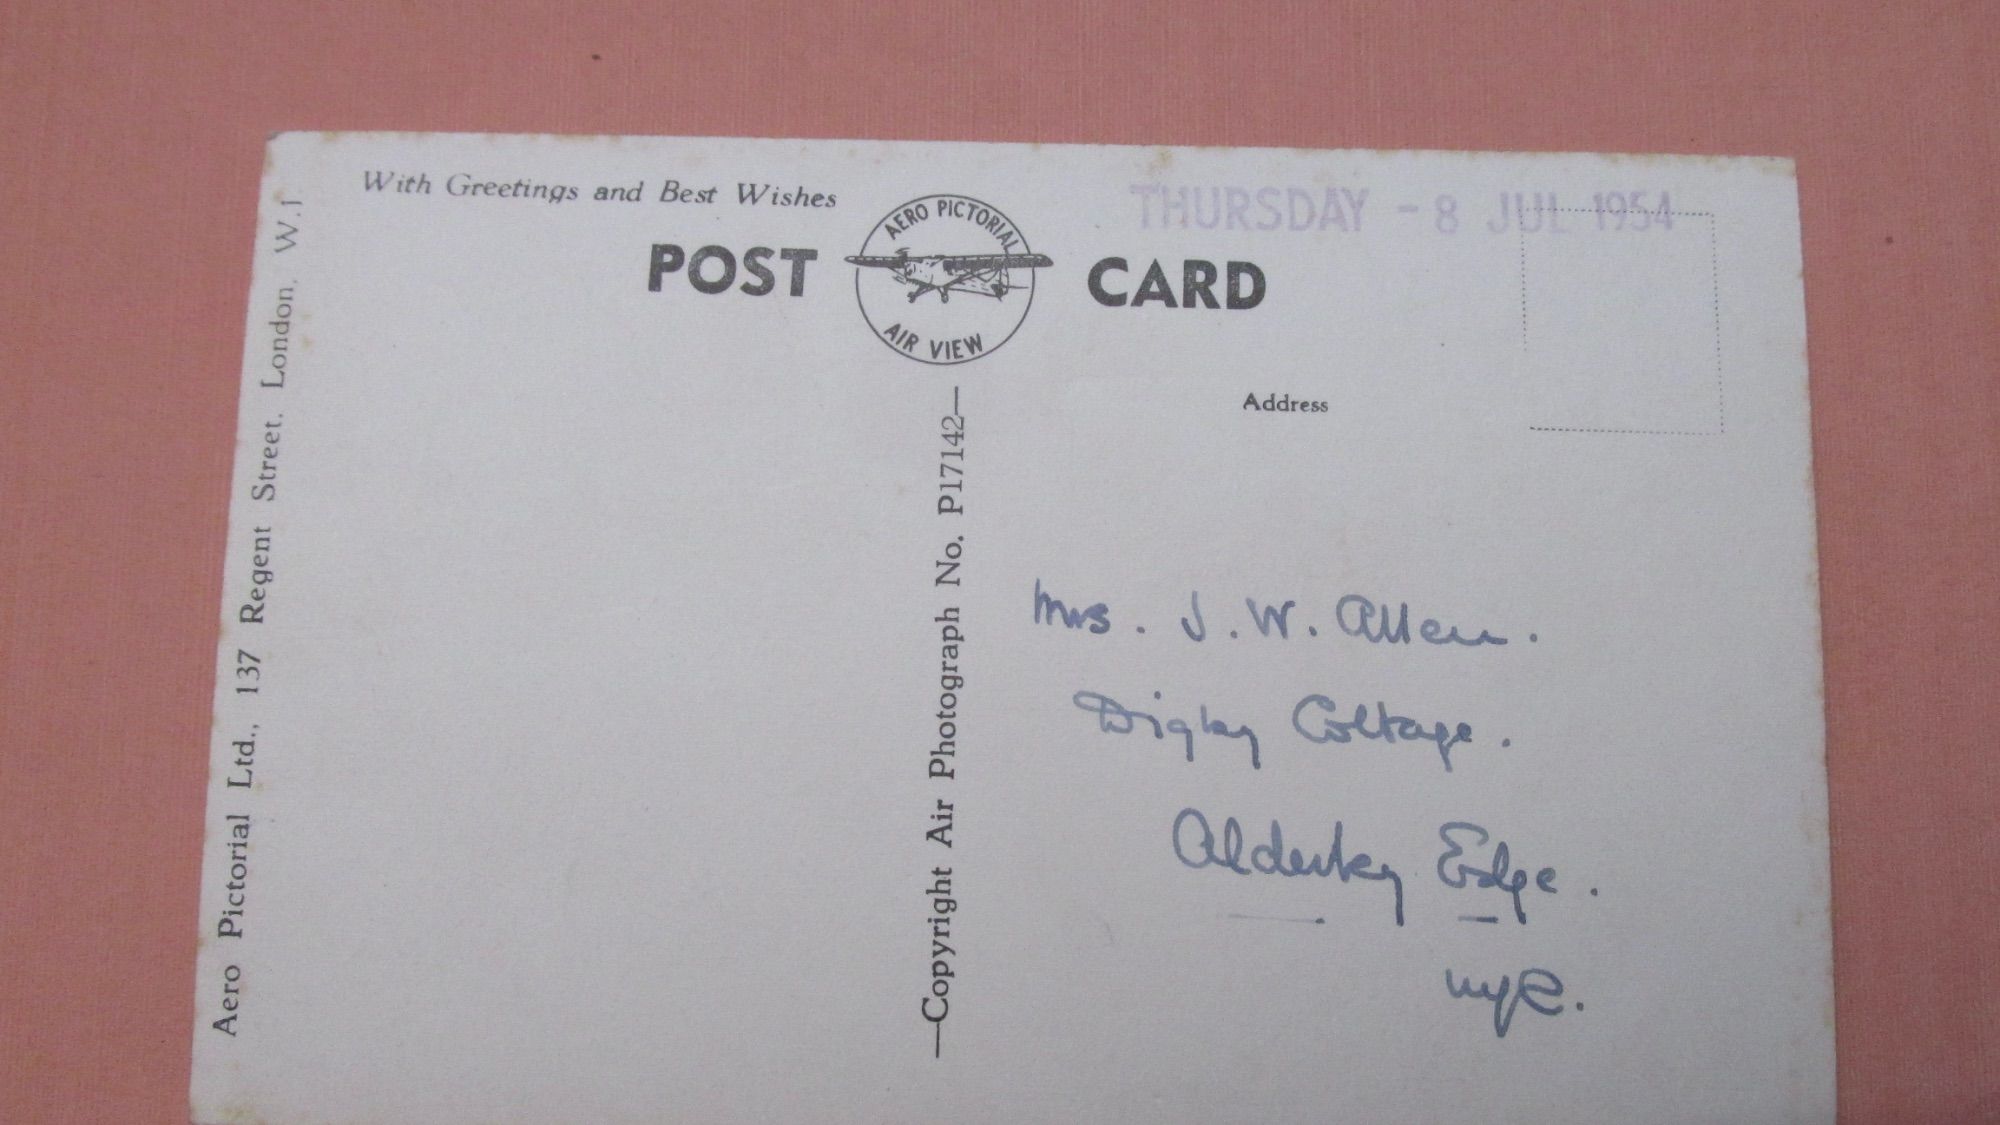 With Greetings and Best Wishes
THURSDAY - 8 JUL 1954
POST CARD
AERO PICTORIAL
AIR VIEW
Address
Aero Pictorial Ltd., 137 Regent Street, London, W.1
—Copyright Air Photograph No. P17142—
Mrs. J. W. Allen.
Digby Cottage.
Alderley Edge.